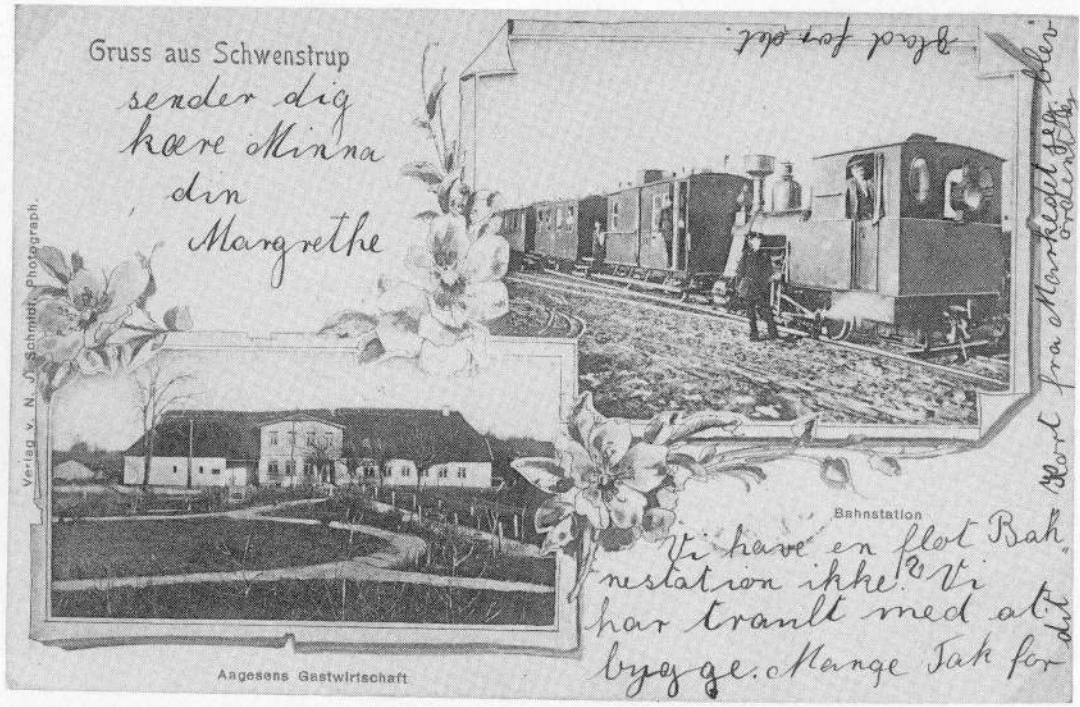 Gruss aus Schwenstrup
sender dig
kære Minna
din
Margrethe
Verlag v. N. J. Schmidt, Photograph.
Aagesens Gastwirtschaft
Bahnstation
Vi have en flot Bah„
nestation ikke? Vi
har travlt med at
bygge. Mange Tak for
dit
Kort fra Markedet jeg. blev
ordentlig
glad for det.